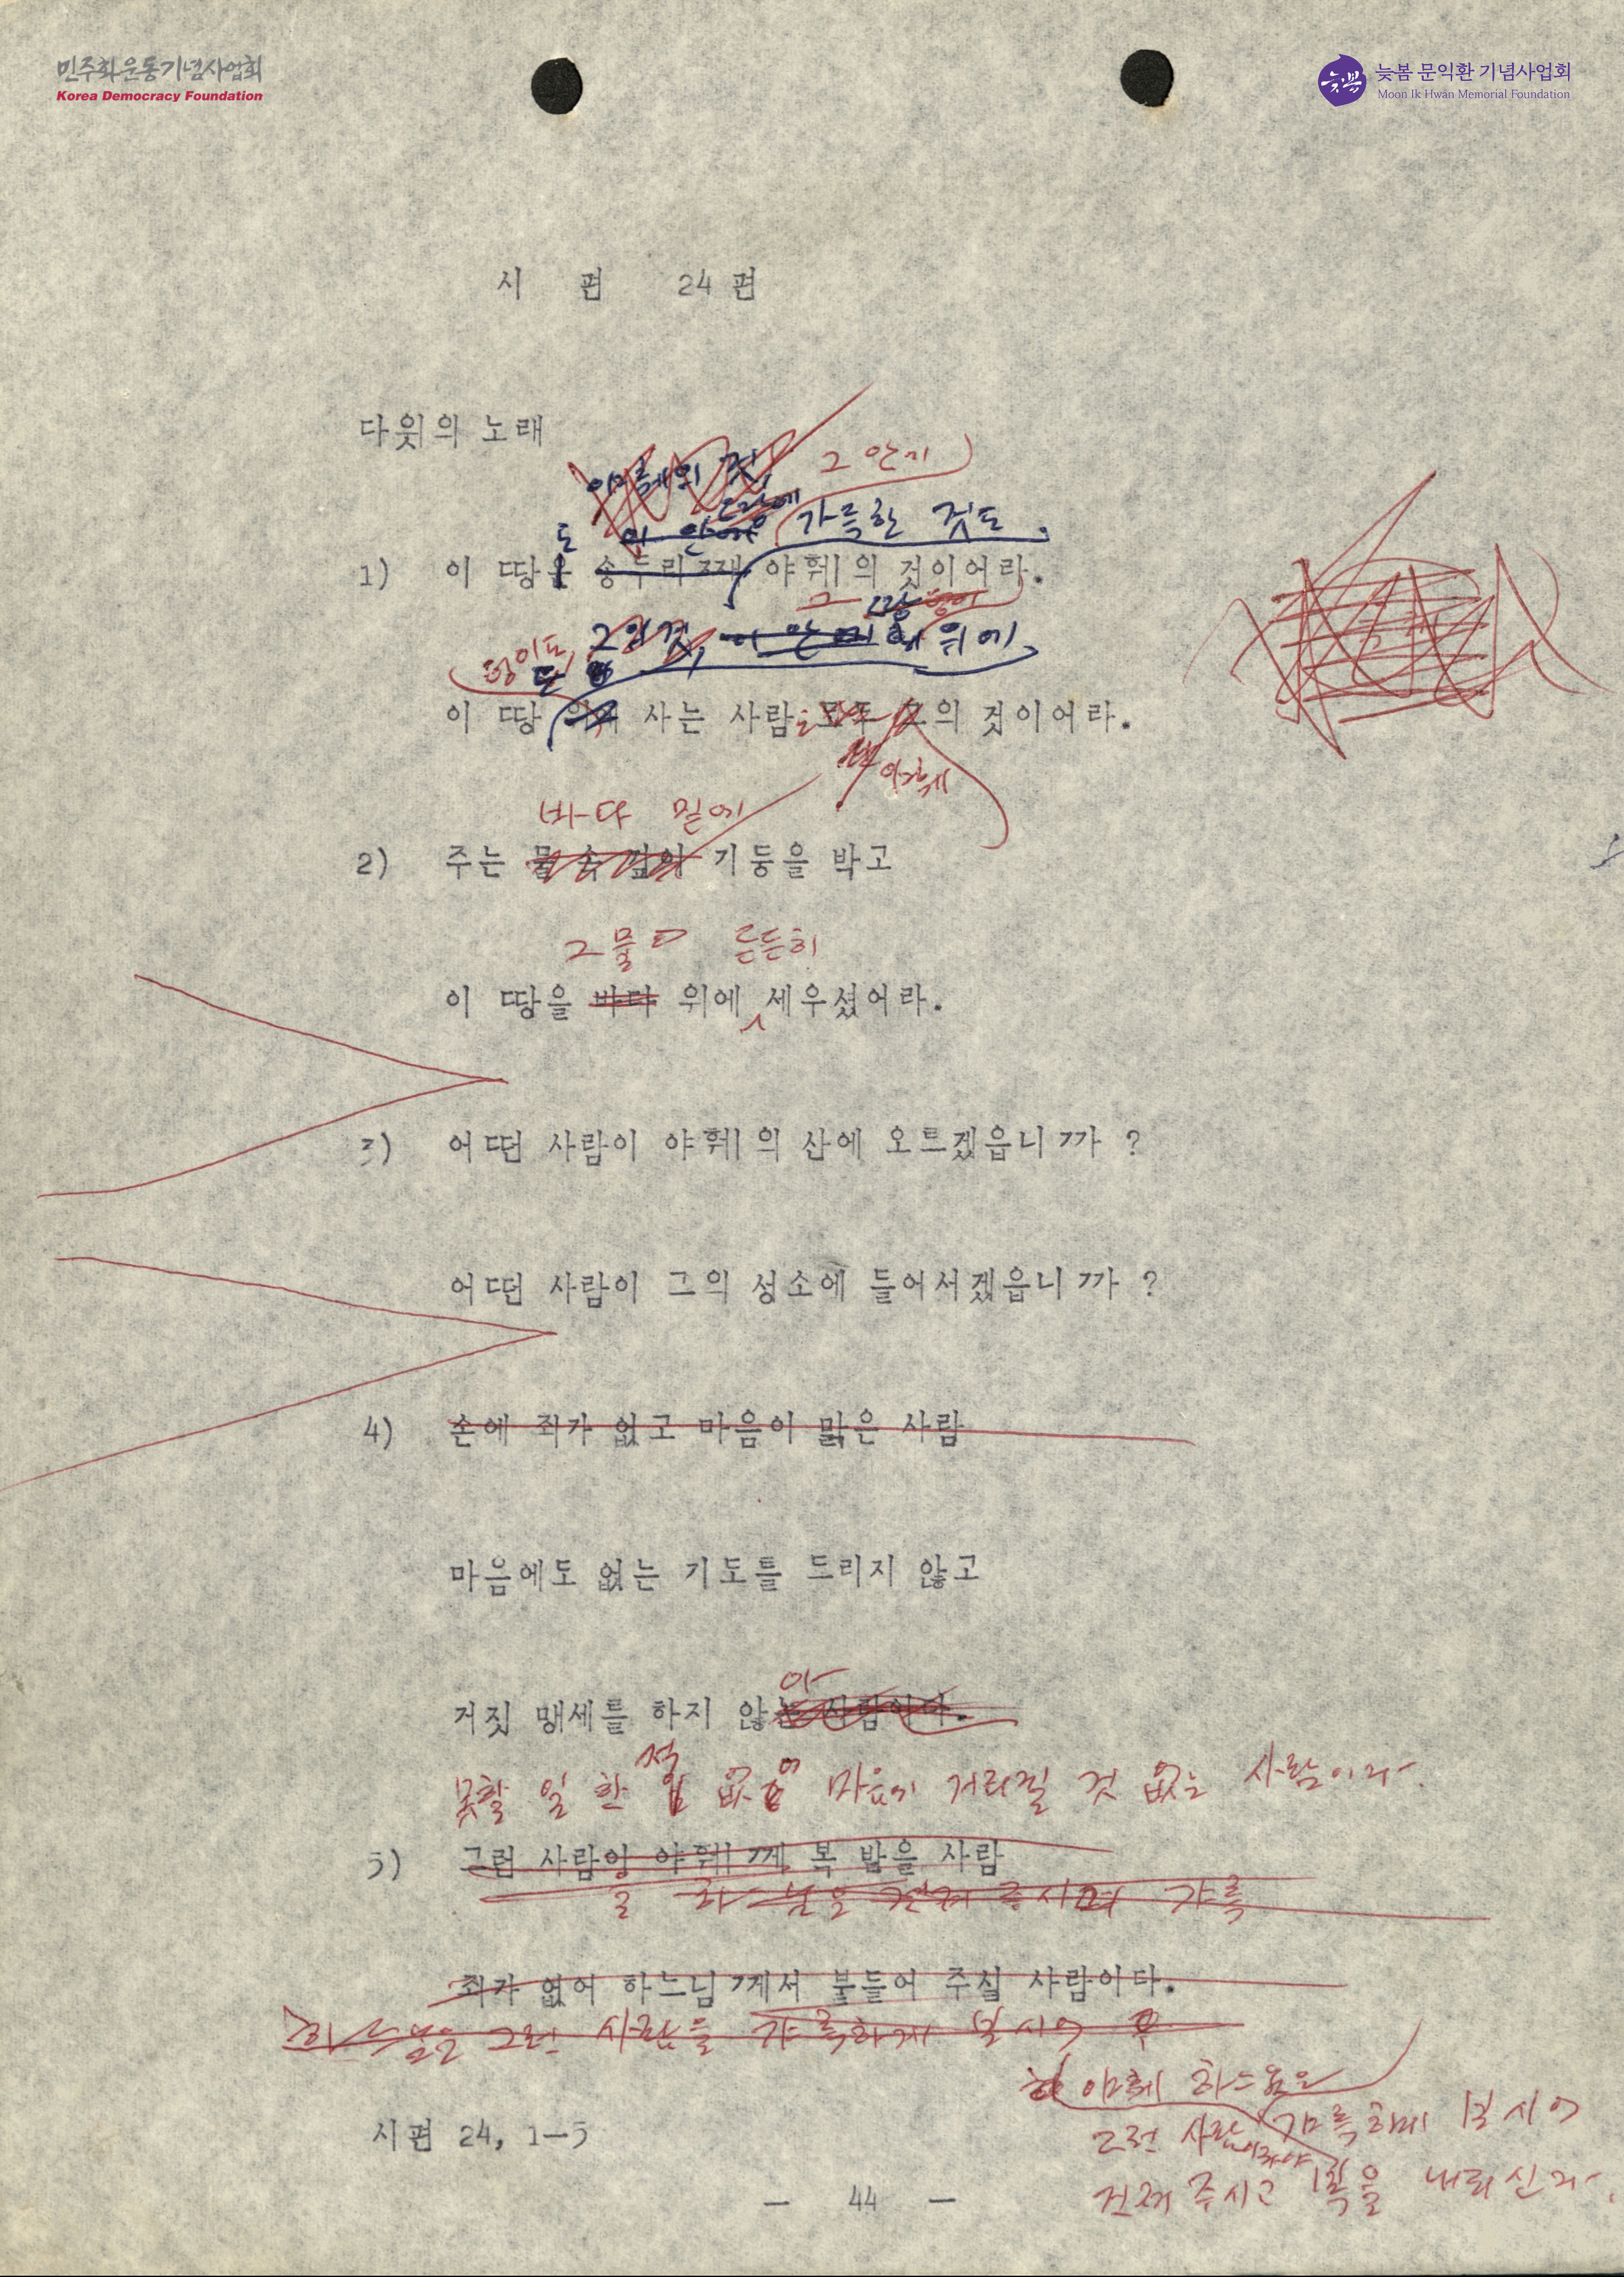 민주화운동기념사업회
Korea Democracy Foundation
늦봄
늦봄 문익환 기념사업회
Moon Ik Hwan Memorial Foundation
시 편 24 편
다윗의 노래
야훼의 것,
그 안에
도 가득한 것도
1) 이 땅은 송두리째 야훼의 것이어라.
그의 것, 위에
이 땅 위에 사는 사람 모두 그의 것이어라.
야훼
바다 밑에
2) 주는 물 속 깊이 기둥을 박고
그 물 든든히
이 땅을 바다 위에 세우셨어라.
3) 어떤 사람이 야훼의 산에 오르겠읍니까 ?
어떤 사람이 그의 성소에 들어서겠읍니까 ?
4) 손에 죄가 없고 마음이 맑은 사람
마음에도 없는 기도를 드리지 않고
아
거짓 맹세를 하지 않는 사람이다.
적
못할 일 한 없어 마음에 거리낄 것 없는 사람이라.
5) 그런 사람이 야훼께 복 받을 사람
를 하느님은 건져 주시며 갸륵
죄가 없어 하느님께서 붙들어 주실 사람이다.
하느님은 그런 사람을 갸륵하게 보시어
야훼 하느님은
그런 사람 갸륵하게 보시어
이라야
건져 주시고 복을 내리신다.
시편 24, 1—5
— 44 —